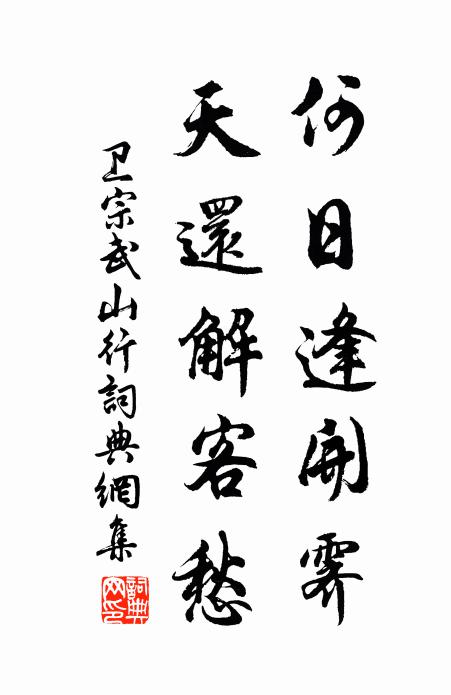 何日逢開霽
天還解客愁
卫宗武山行詞典網集
詞典網印